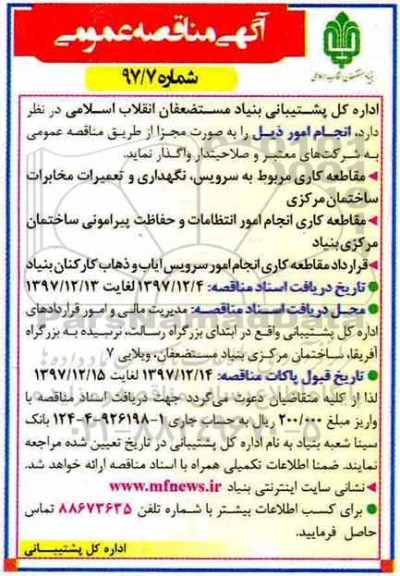 آگهی مناقصه عمومی
شماره ۹۷/۷
بنیاد مستضعفان انقلاب اسلامی
اداره کل پشتیبانی بنیاد مستضعفان انقلاب اسلامی در نظر
دارد، انجام امور ذیل را به صورت مجزا از طریق مناقصه عمومی
به شرکت‌های معتبر و صلاحیتدار واگذار نماید.
مقاطعه کاری مربوط به سرویس، نگهداری و تعمیرات مخابرات
ساختمان مرکزی
مقاطعه کاری انجام امور انتظامات و حفاظت پیرامونی ساختمان
مرکزی بنیاد
قرارداد مقاطعه کاری انجام امور سرویس ایاب و ذهاب کارکنان بنیاد
تاریخ دریافت اسناد مناقصه: ۱۳۹۷/۱۲/۴ لغایت ۱۳۹۷/۱۲/۱۳
محل دریافت اسناد مناقصه: مدیریت مالی و امور قراردادهای
اداره کل پشتیبانی واقع در ابتدای بزرگراه رسالت، نرسیده به بزرگراه
آفریقا، ساختمان مرکزی بنیاد مستضعفان، ویلایی ۷
تاریخ قبول پاکات مناقصه: ۱۳۹۷/۱۲/۱۴ لغایت ۱۳۹۷/۱۲/۱۵
لذا از کلیه متقاضیان دعوت می‌گردد جهت دریافت اسناد مناقصه با
واریز مبلغ ۲۰۰/۰۰۰ ریال به حساب جاری ۱-۹۲۶۱۹۸-۴-۱۲۴ بانک
سینا شعبه بنیاد به نام اداره کل پشتیبانی در تاریخ تعیین شده مراجعه
نمایند. ضمنا اطلاعات تکمیلی همراه با اسناد مناقصه ارائه خواهد شد.
نشانی سایت اینترنتی بنیاد www.mfnews.ir
برای کسب اطلاعات بیشتر با شماره تلفن ۸۸۶۷۳۶۳۵ تماس
حاصل فرمایید.
اداره کل پشتیبانی